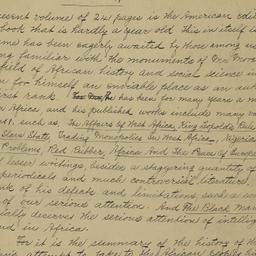 esent volume of 241 pages is the American edi
book that is hardly a year old this in itself is
ms has been eagerly awaited by those among us
ng familiar with the monuments of Mr. Mor
field of African history and social science
n for himself an enviable place as an au
irst rank has been for many years a
w Africa and his published works include many
such as The Affairs of West Africa, King Leopold's Rule
Slave State, Trading Monopolies In West Africa, Nigeria
Problems, Red Rubber, Africa And The Peace of Europe
f lesser writings, besides a staggering quantity of
periodicals and much controversial literature.
nk of his defects and limitations, such a
of our serious attention. And The Black Man
ially deserves the serious attention of intellig
nd in Africa.
For it is the summary of the history of the